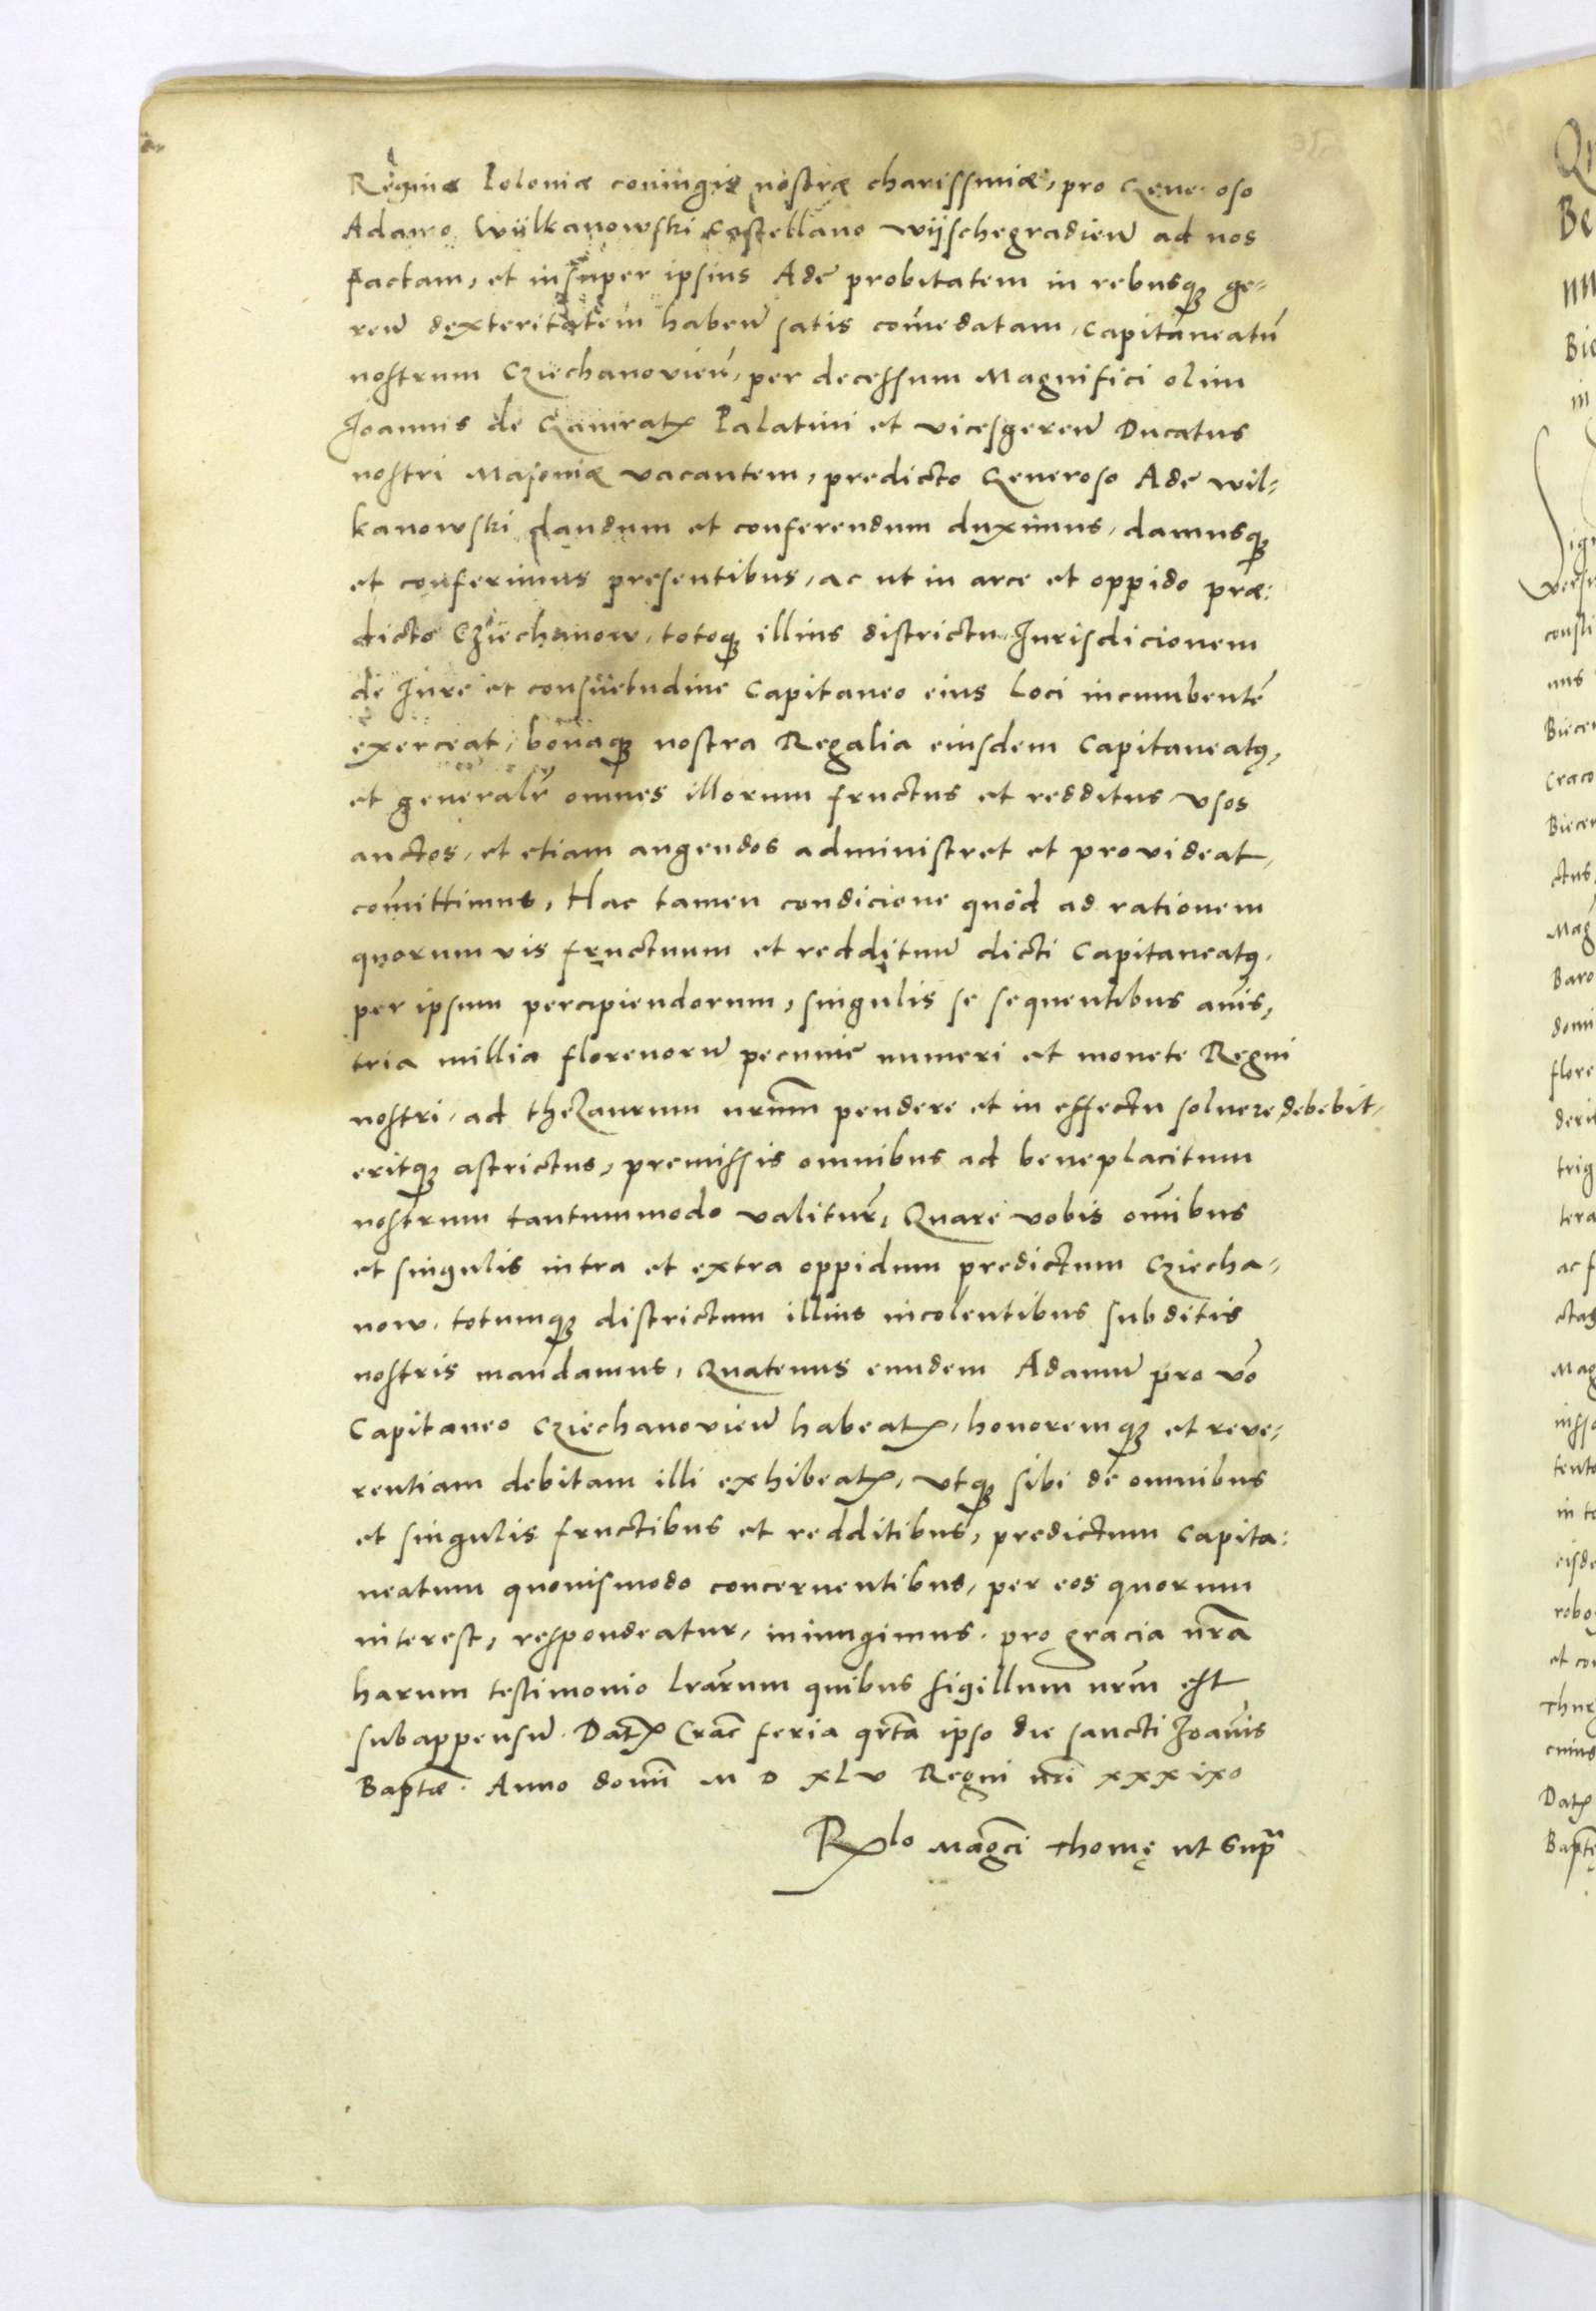 Reginæ Poloniæ coniungis nostræ charissimæ, pro Generoso
Adamo Wilkanowski Castellano Wijschegradien̄ ad nos
factam, et insuper ipsius Adę probitatem in rebusq₃ ge-
ren̄ dexteritatem haben̄ satis com̄edatam, Capitaneatū
nostrum Cziechanovien̄, per decessum Magnifici olim
Joannis de Gamratꝭ Palatini et vicesgeren̄ Ducatus
nostri Masoniæ vacantem, predicto Generoso Adę Wil-
kanowski dandum et conferendum duximus, damusq₃
et conferimus presentibus, ac ut in arce et oppido præ:
dicto Cziechanow, totoq₃ illius districtu Jurisdicionem
de Jure et consuetudine Capitaneo eius loci incumbentē
exerceat, bonaq₃ nostra Regalia eiusdem Capitaneatꝰ,
et generalr̄ omnes illorum fructus et redditus usos
auctos, et etiam augendos administret et provideat,
com̄ittimus, Hac tamen condicione quod ad rationem
quorumvis fructuum et reddituū dicti Capitaneatꝰ,
per ipsum percipiendorum, singulis se sequentibus an̄is,
tria millia florenorū pecuniē numeri et monete Regni
nostri, ad thezaurum nr̄um pendere et in effectu solvere debebit,
eritq₃ astrictus, premissis omnibus ad beneplacitum
nostrum tantummodo valitur̄, Quare vobis om̄ibus
et singulis intra et extra oppidum predictum Cziecha-
now, totumq₃ districtum illius incolentibus subditis
nostris mandamus, Quatenus eundem Adamū pro vō
Capitaneo Cziechanovien̄ habeatꝭ, honoremq₃ et reve-
rentiam debitam illi exhibeatꝭ, utq₃ sibi de omnibus
et singulis fructibus et redditibus, predictum Capita:
neatum quovismodo concernentibus, per eos quorum
interest, respondeatur, iniungimus, pro gracia nr̄a
harum testimonio lrārum quibus sigillum nr̄m est
subappensū. Datꝭ Crac̄ feria qr̄ta ipso die sancti Joan̄is
Baptæ. Anno domī M D XLV Regni nr̄i XXXIXo
Rꝭlo Magc̄i Thomę ut supra